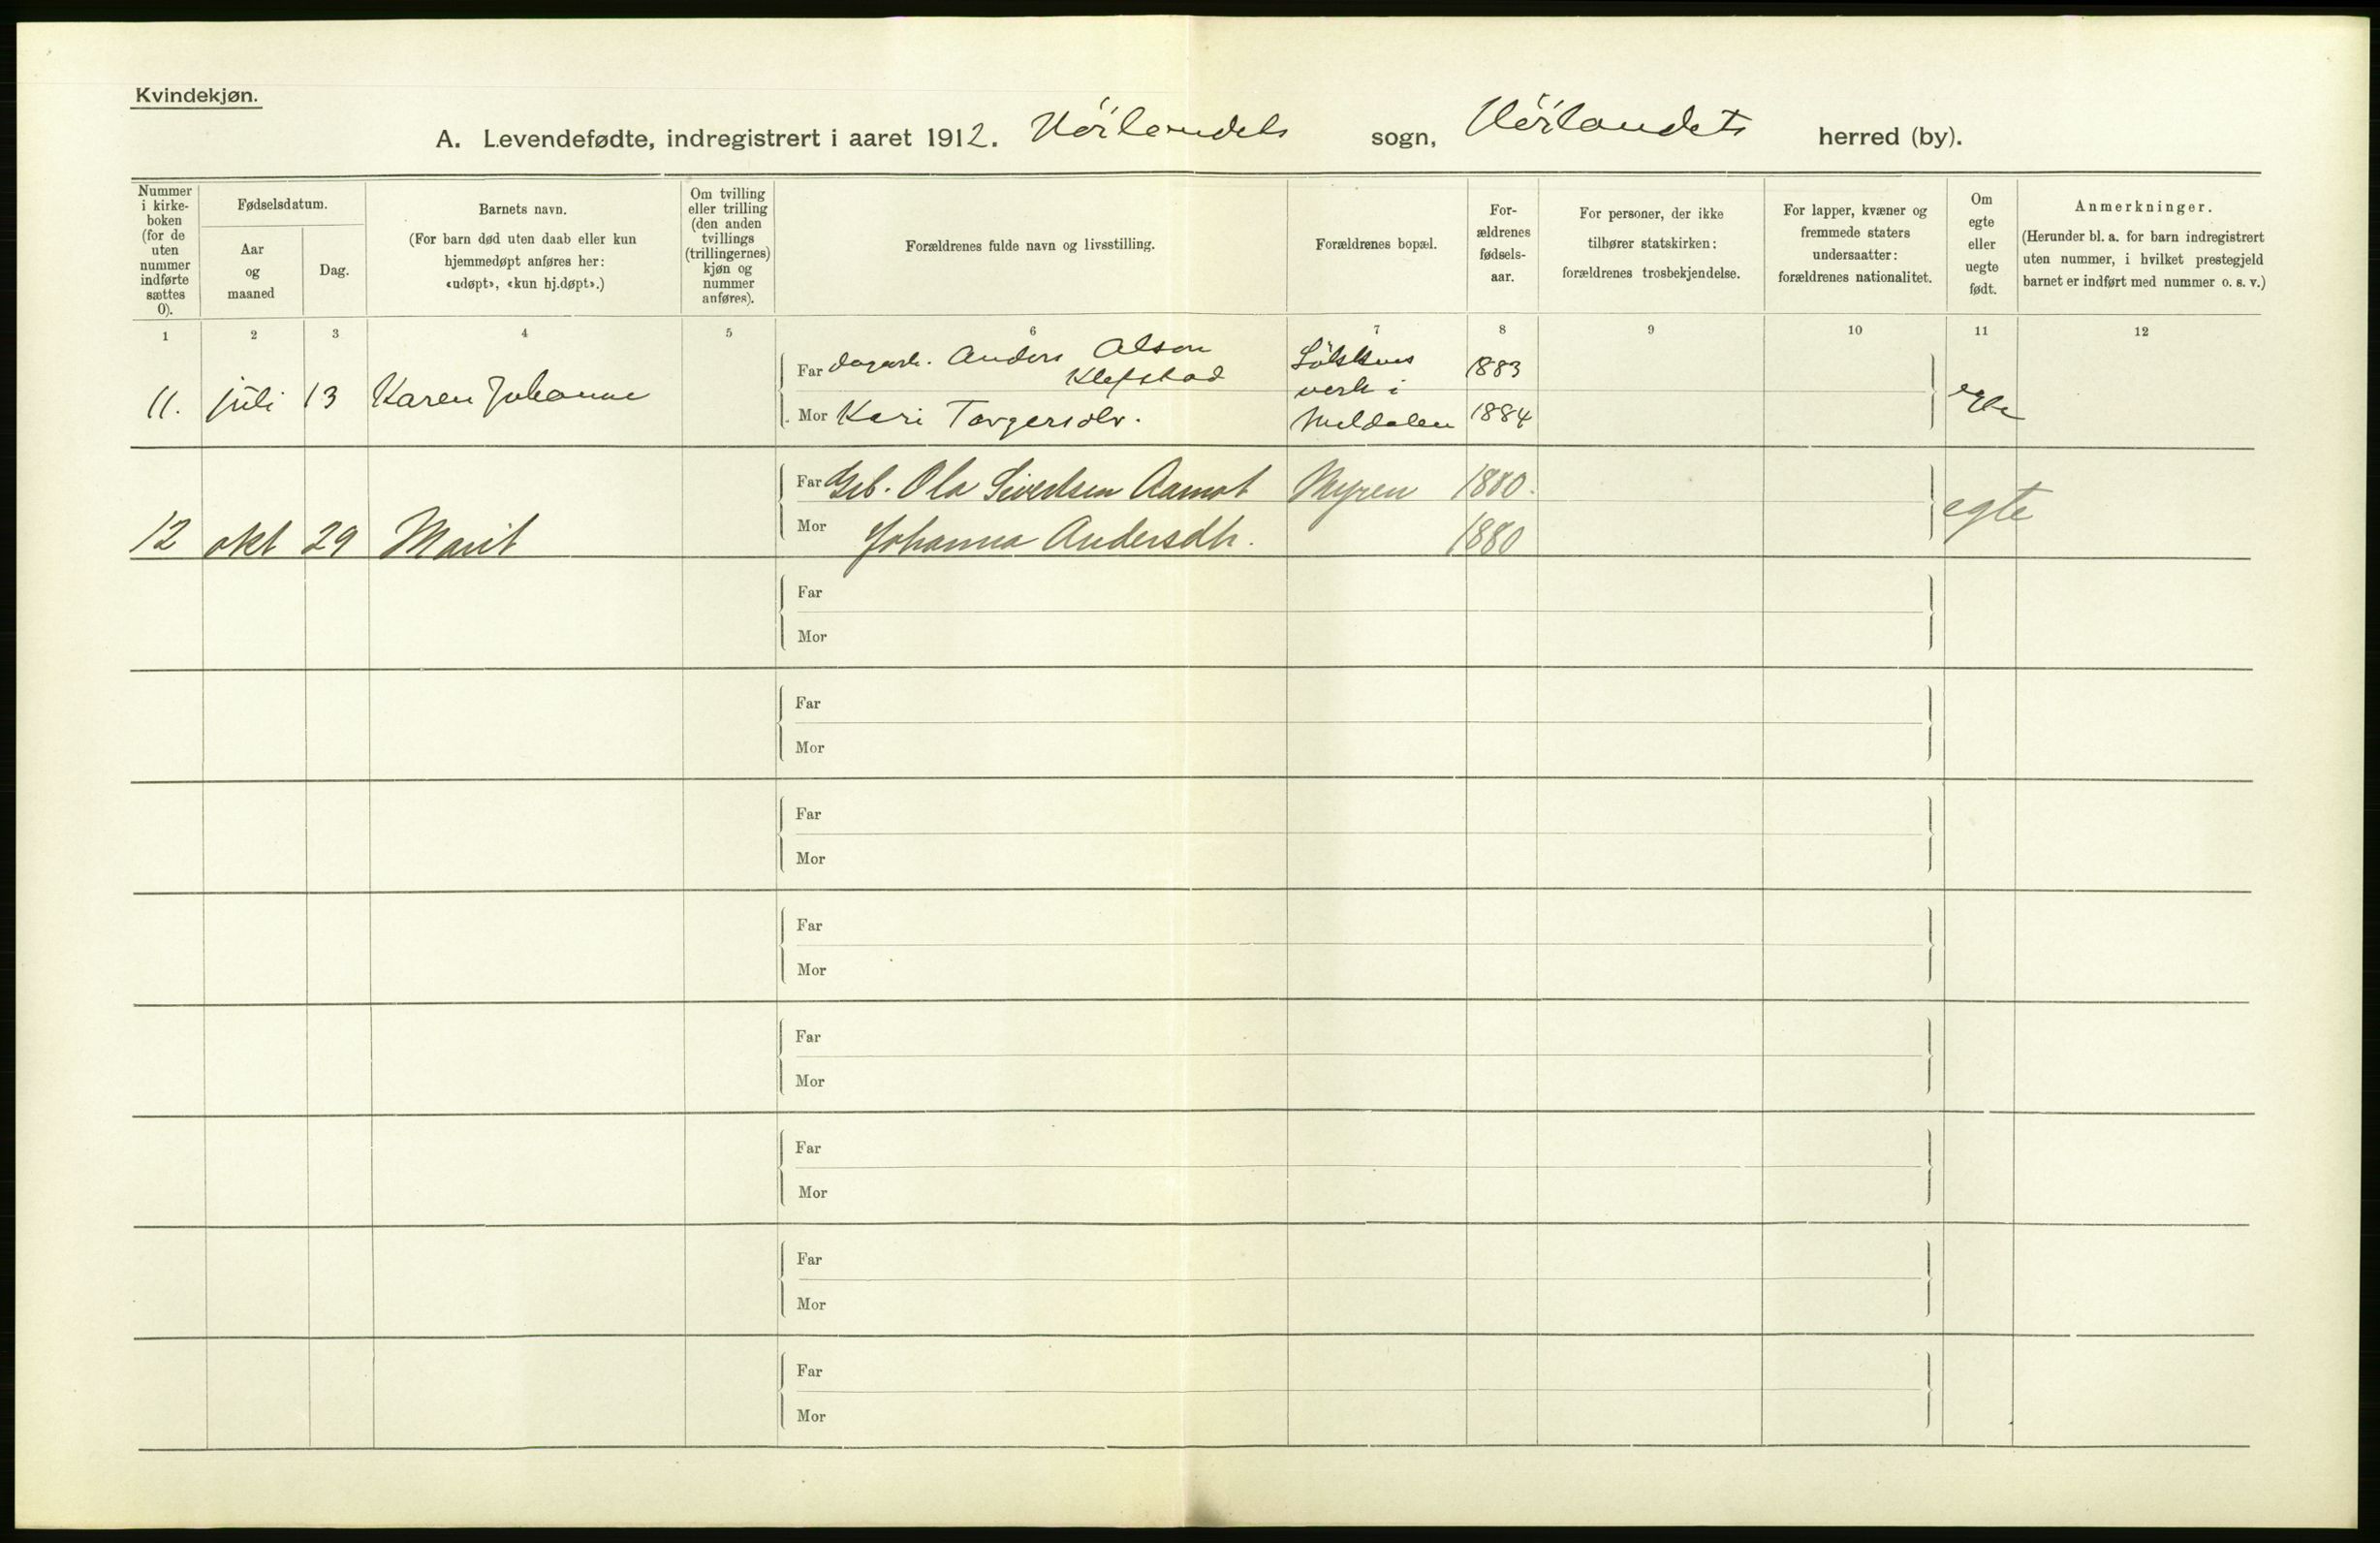 Kvindekjøn.
A. Levendefødte, indregistrert i aaret 1912. Hörlandets sogn, Hörlandets herred (by).
Nummer
i kirke-
boken
(for de
uten
nummer
indførte
sættes
0).
Fødselsdatum.
Aar
og
maaned
Dag.
Barnets navn.
(For barn død uten daab eller kun
hjemmedøpt anføres her:
«udøpt», «kun hj.døpt».)
Om tvilling
eller trilling
(den anden
tvillings
(trillingernes)
kjøn og
nummer
anføres).
Forældrenes fulde navn og livsstilling.
Forældrenes bopæl.
For-
ældrenes
fødsels-
aar.
For personer, der ikke
tilhører statskirken:
forældrenes trosbekjendelse.
For lapper, kvæner og
fremmede staters
undersaatter:
forældrenes nationalitet.
Om
egte
eller
uegte
født.
Anmerkninger.
(Herunder bl. a. for barn indregistrert
uten nummer, i hvilket prestegjeld
barnet er indført med nummer o. s. v.)
1 2 3 4 5 6 7 8 9 10 11 12
11. juli 13 Karen Johanne
Far dagarb. Anders Olsen
Klefstad
Mor Kari Torgersdtr.
verk i
Meldalen
1883
1884
egte
12 okt 29 Marit
Far Gb. Ola Sivertsen Aamot Myren 1880.
Mor Johanna Andersdtr. 1880
egte
Far
Mor
Far
Mor
Far
Mor
Far
Mor
Far
Mor
Far
Mor
Far
Mor
Far
Mor